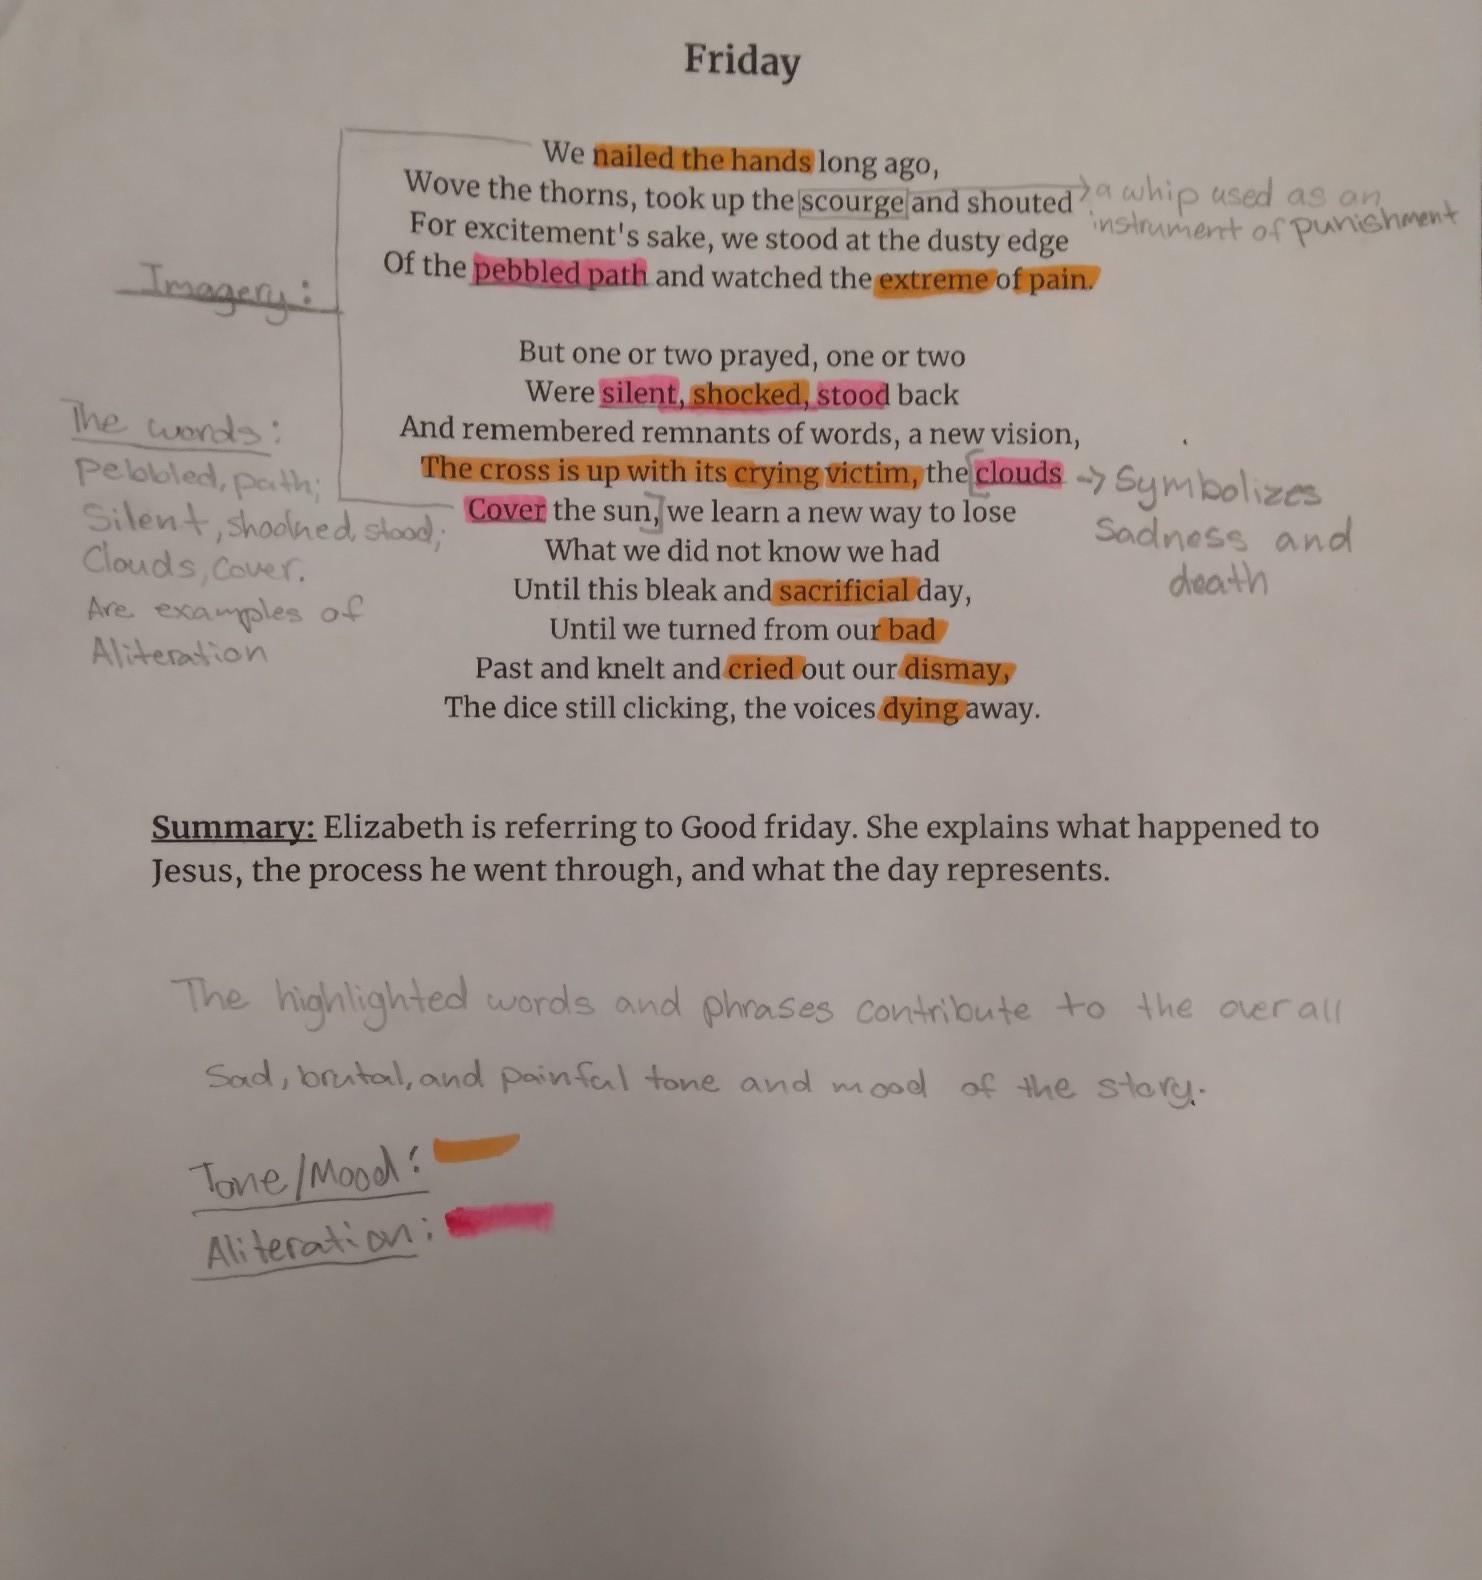 Friday
We nailed the hands long ago,
Wove the thorns, took up the scourge and shouted
a whip used as an
instrument of punishment
For excitement's sake, we stood at the dusty edge
Of the pebbled path and watched the extreme of pain.
Imagery:
But one or two prayed, one or two
Were silent, shocked, stood back
And remembered remnants of words, a new vision,
The cross is up with its crying victim, the clouds
Cover the sun, we learn a new way to lose
What we did not know we had
Until this bleak and sacrificial day,
Until we turned from our bad
Past and knelt and cried out our dismay,
The dice still clicking, the voices dying away.
The words:
Pebbled, path;
Silent, shocked, stood;
Clouds, cover.
Are examples of
Aliteration
→ Symbolizes
Sadness and
death
Summary: Elizabeth is referring to Good friday. She explains what happened to
Jesus, the process he went through, and what the day represents.
The highlighted words and phrases contribute to the overall
Sad, brutal, and painful tone and mood of the story.
Tone/Mood:
Aliteration: